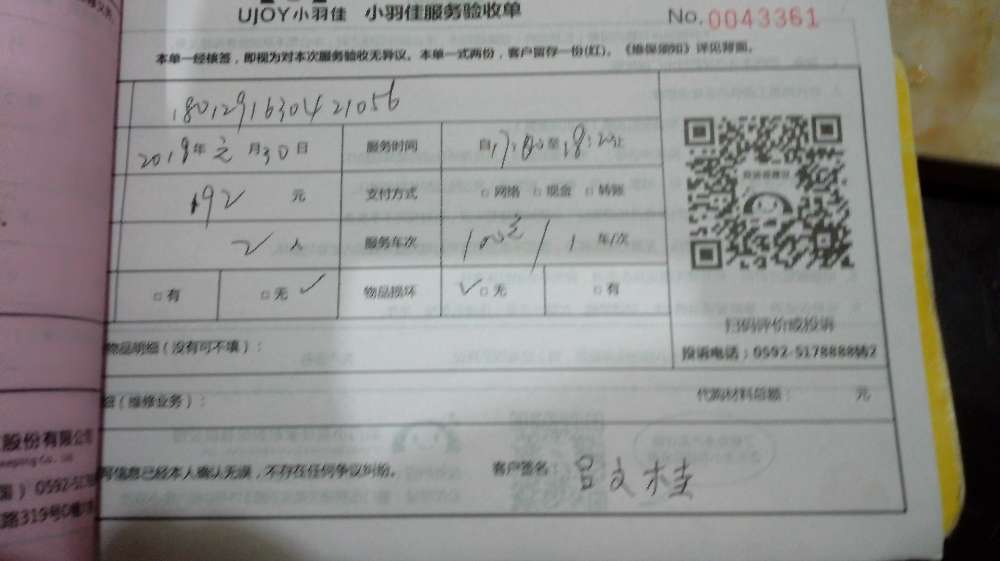 UJOY小羽佳 小羽佳服务验收单 No. 0043361
本单一经核签，即视为对本次服务验收无异议。本单一式两份，客户留存一份(红)。《维保须知》详见背面。
1801291630421056
2018年元月30日 服务时间 自17:00至18:20止
192 元 支付方式 □网络 □现金 □转账
2人 服务车次 1 车/次
□有 □无✓ 物品损坏 ✓□无 □有
扫码评价或投诉
投诉电话：0592-5178888转2
物品明细（没有可不填）：
（维修业务）： 代购材料总额： 元
写信息已经本人确认无误，不存在任何争议纠纷。 客户签名：吕文桂
股份有限公司
0592-51
路319号0